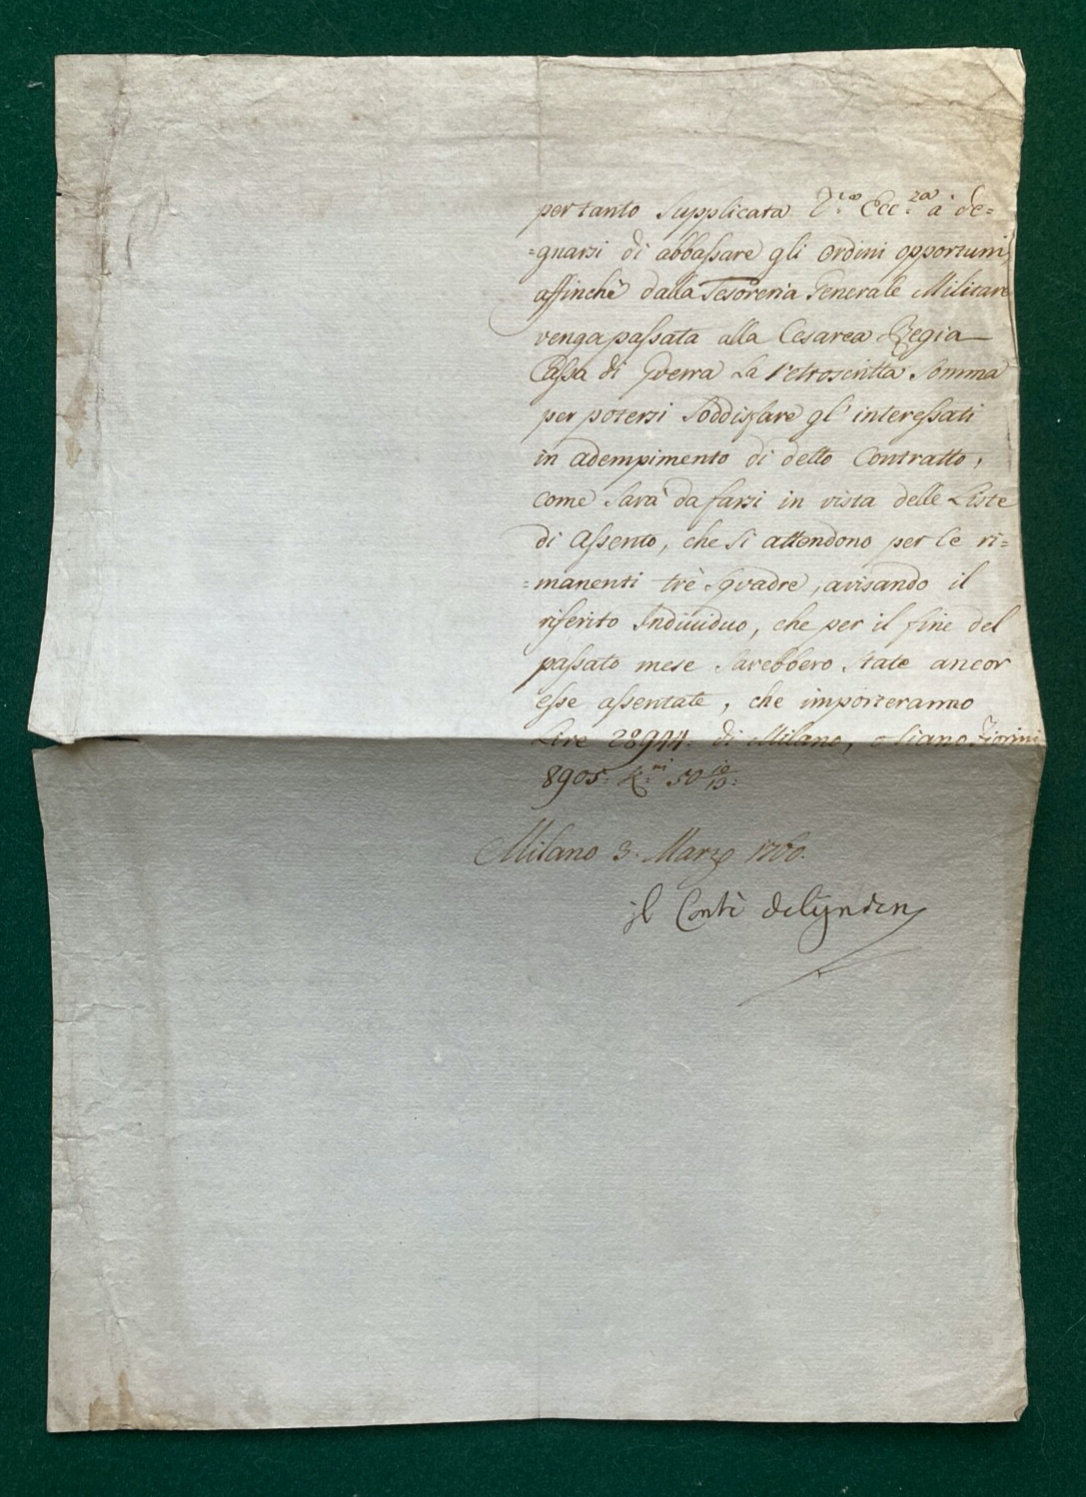 pertanto Supplicata V.ra Ecc.za à de=
=gnarsi di abbassare gli ordini opportuni
affinchè dalla Tesoreria Generale Militare
venga passata alla Cesarea Regia
Cassa di Guerra La retroscritta Somma
per potersi Soddisfare gl' interessati
in adempimento di detto Contratto,
come Sarà da farsi in vista delle Liste
di Assento, che Si attendono per le ri=
=manenti trè Squadre, avisando il
riferito Individuo, che per il fine del
passato mese Sarebbero State ancor
esse assentate, che importeranno
Lire 28944. di Milano, o siano Fiorini
8905. K.ni 50
Milano 3. Marzo 1760.
il Conte delijnden